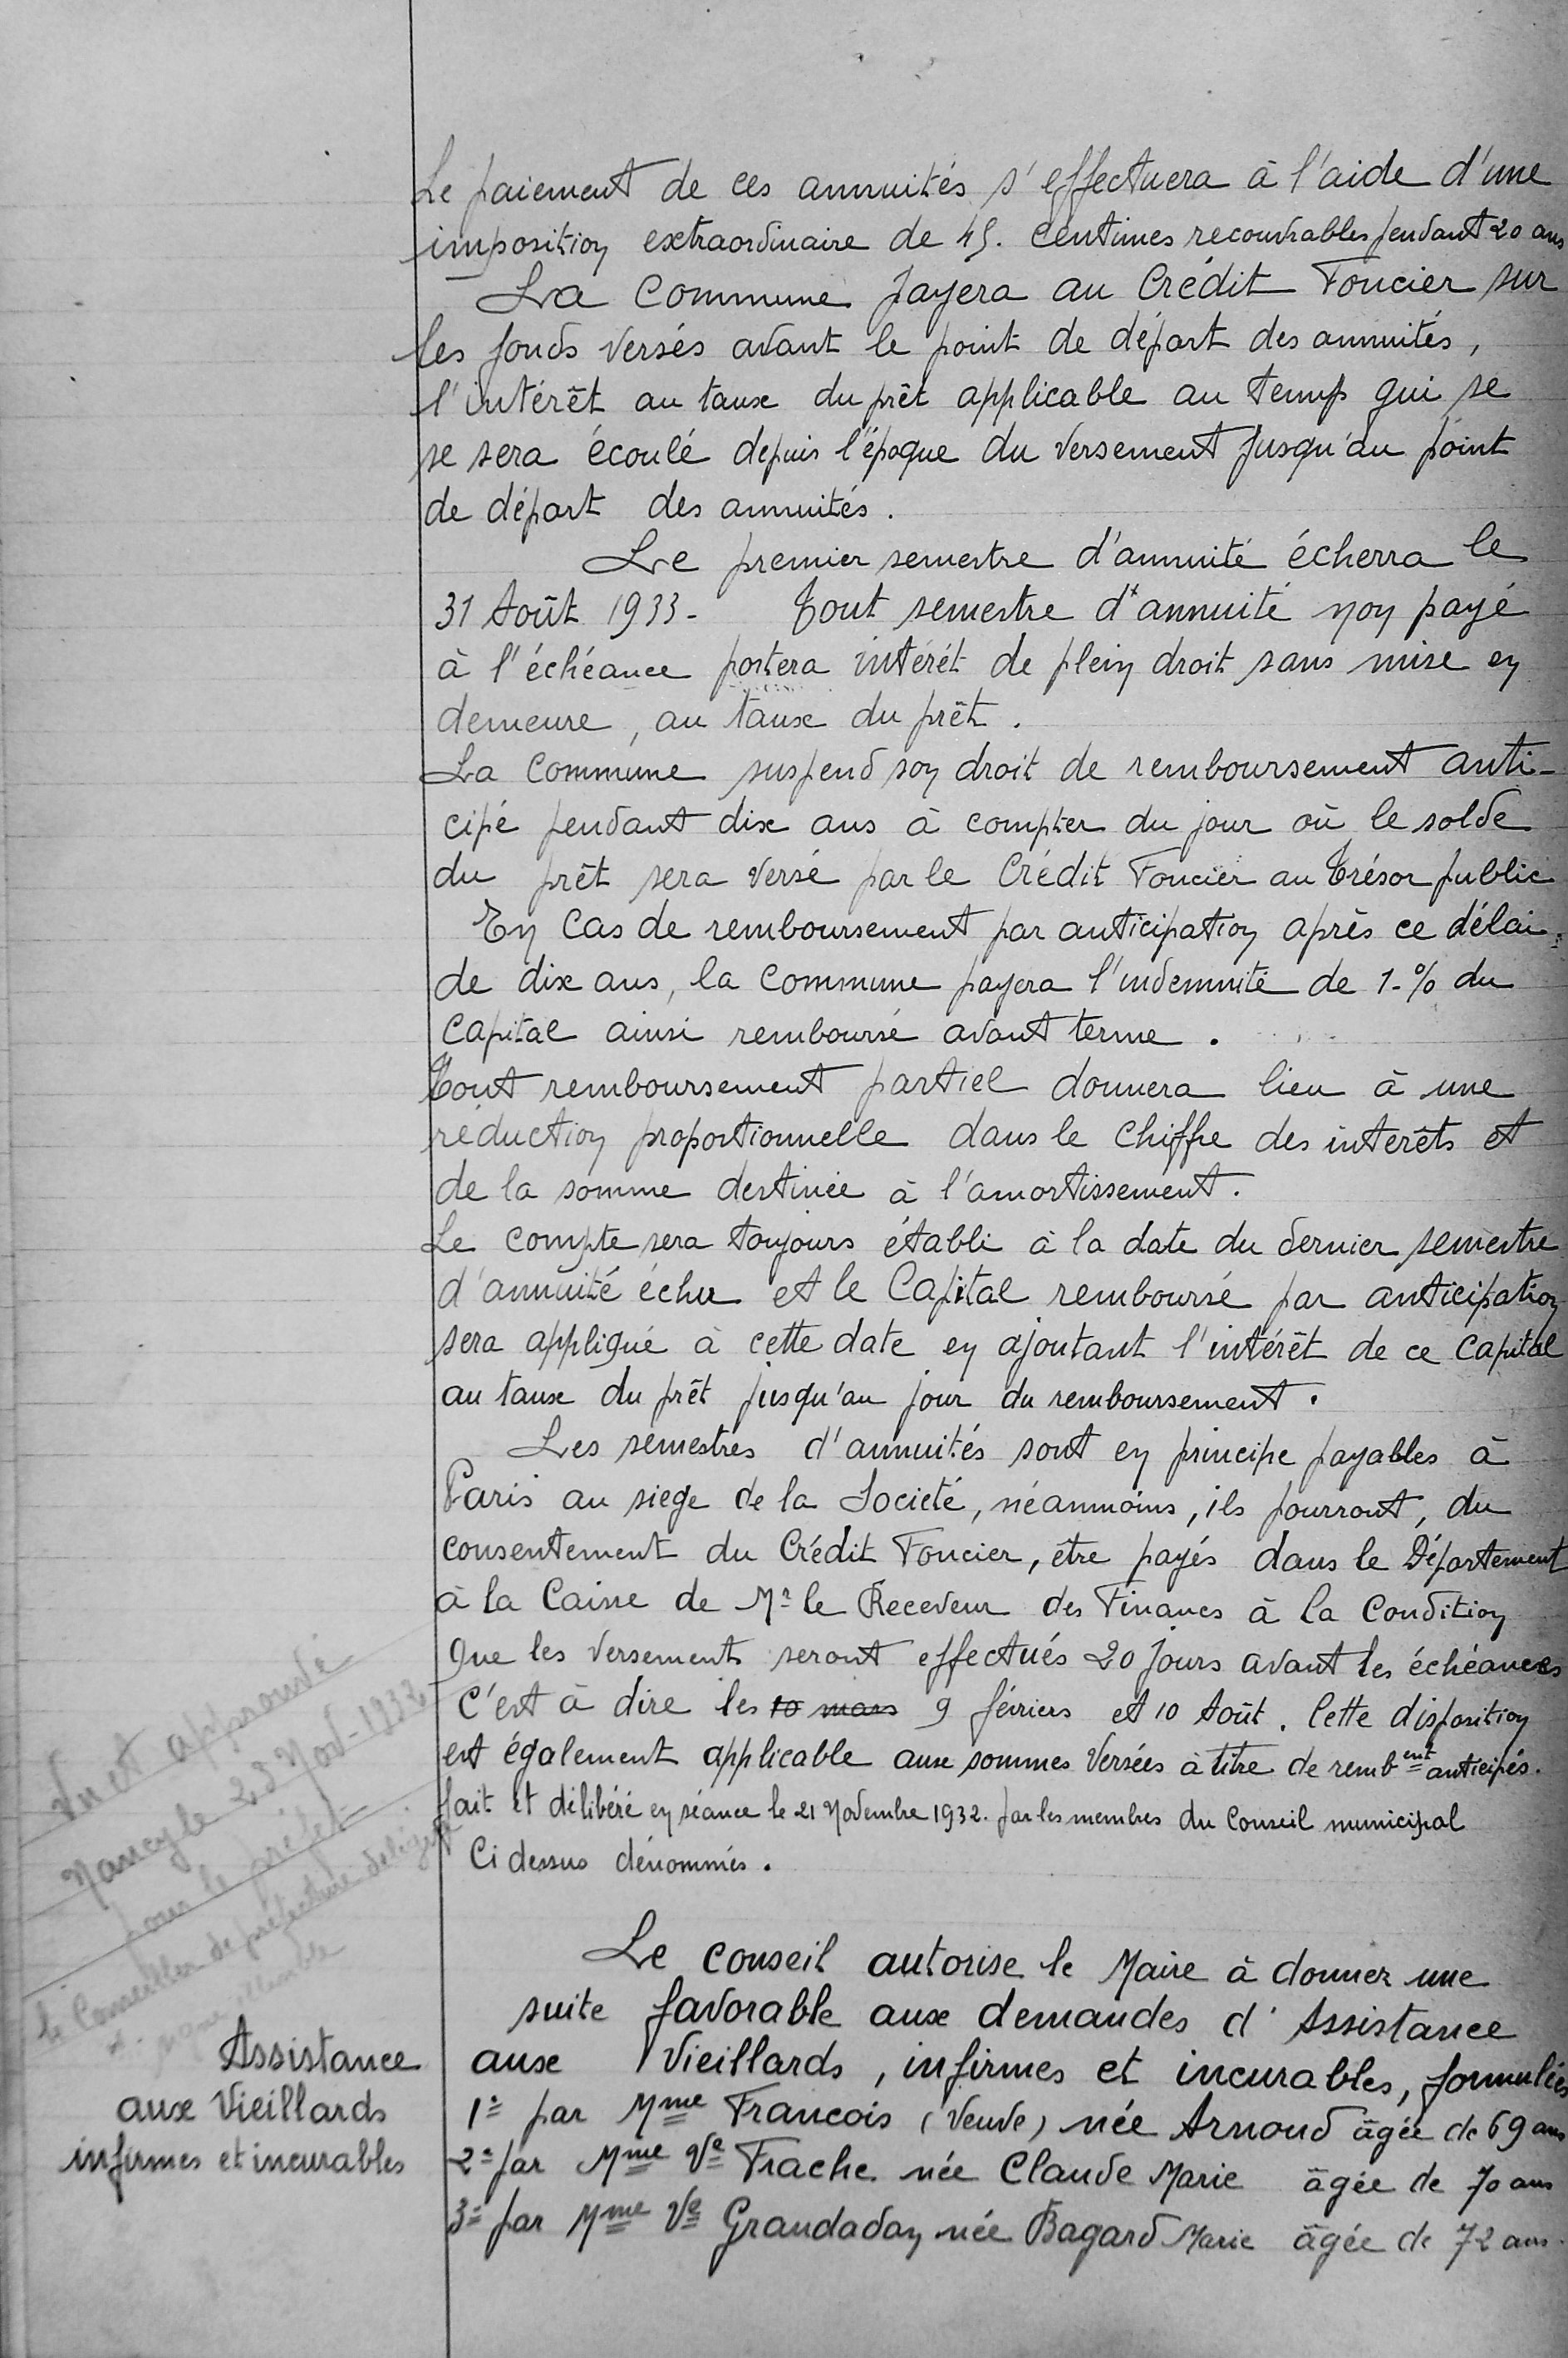 Le paiement de ces annuités s'effectuera à l'aide d'une
imposition extraordinaire de 45. centimes recouvrables pendant 20 ans
La Commune payera au Crédit Foncier sur
les fonds versés avant le point de départ des annuités,
l'intérêt au taux du prêt applicable au temps qui se
se sera écoulé depuis l'époque du versement jusqu'au point
de départ des annuités.
Le premier semestre d'annuité écherra le
31 Août 1933 - Tout semestre d'annuité non payé
à l'échéance portera intérêt de plein droit sans mise en
demeure, au taux du prêt.
La Commune suspend son droit de remboursement anti-
cipé pendant dix ans à compter du jour où le solde
du prêt sera versé par le Crédit Foncier au Trésor public
En Cas de remboursement par anticipation après ce délai
de dix ans, la Commune payera l'indemnité de 1-% du
Capital ainsi remboursé avant terme.
Tout remboursement partiel donnera lieu à une
réduction proportionnelle dans le chiffre des intérêts et
de la somme destinée à l'amortissement.
Le compte sera toujours établi à la date du dernier semestre
d'annuité échu et le Capital remboursé par anticipation
sera appliqué à cette date en ajoutant l'intérêt de ce Capital
au taux du prêt jusqu'au jour du remboursement.
Les semestres d'annuités sont en principe payables à
Paris au siège de la Société, néanmoins, ils pourront, du
consentement du Crédit Foncier, être payés dans le Département
à la Caisse de Mr le Receveur des Finances à la Condition
que les versements seront effectués 20 jours avant les échéances
C'est à dire les 10 mars 9 févriers et 10 Août. Cette disposition
est également applicable aux sommes versées à titre de rembent anticipés.
fait et délibéré en séance le 21 Novembre 1932. par les membres du Conseil municipal
Ci dessus dénommés.
Vu et approuvé
Nancy le 23 Nov-1932
pour le préfet
le Conseiller de préfecture délégué
signé illisible
Assistance
aux Vieillards
infirmes et incurables
Le Conseil autorise le Maire à donner une
suite favorable aux demandes d'Assistance
aux Vieillards, infirmes et incurables, formulées
1° par Mme Francois (Veuve) née Arnoud âgée de 69 ans
2° par Mme Ve Frache née Claude Marie âgée de 70 ans
3° par Mme Ve Grandaday née Bagard Marie âgée de 72 ans.